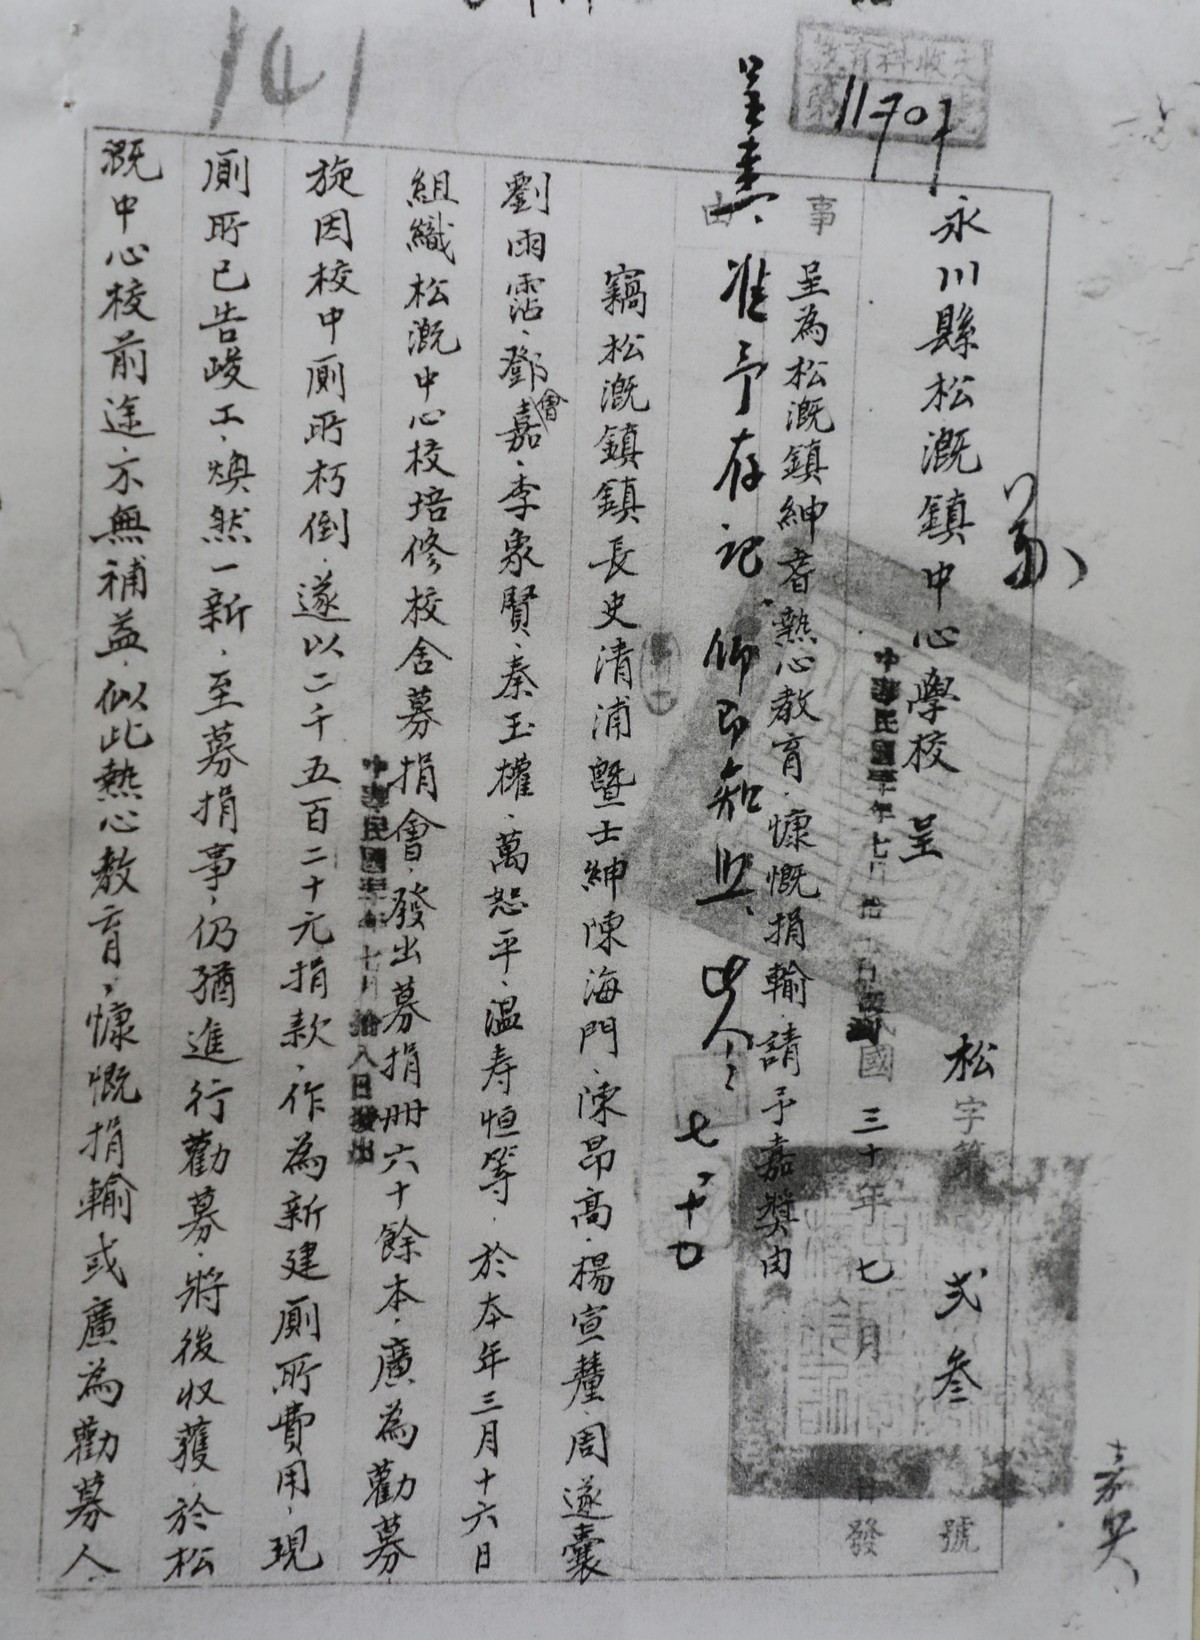 141
教育科收文
第 號
11701
永川縣松溉鎮中心學校 呈
松字第 弍叁 號
中華民國三十年七月 日發
事由
呈為松溉鎮紳耆熱心教育，慷慨捐輸，請予嘉獎由
呈悉，准予存記，仰即知照，此令
七、十九
嘉奖
竊松溉鎮鎮長史清浦暨士紳陳海門、陳昂高、楊宣釐、周遂囊
劉雨霑、鄧嘉會、李象賢、秦玉權、萬恕平、溫寿恒等，於本年三月十六日
組織松溉中心校培修校舍募捐會，發出募捐冊六十餘本，廣為勸募，
旋因校中厠所朽倒，遂以二千五百二十元捐款，作為新建厠所費用，現
中華民國三十年七月拾八日發出
厠所已告峻工，煥然一新，至募捐事，仍猶進行勸募，將後收獲，於松
溉中心校前途，不無補益，似此熱心教育，慷慨捐輸或廣為勸募人，